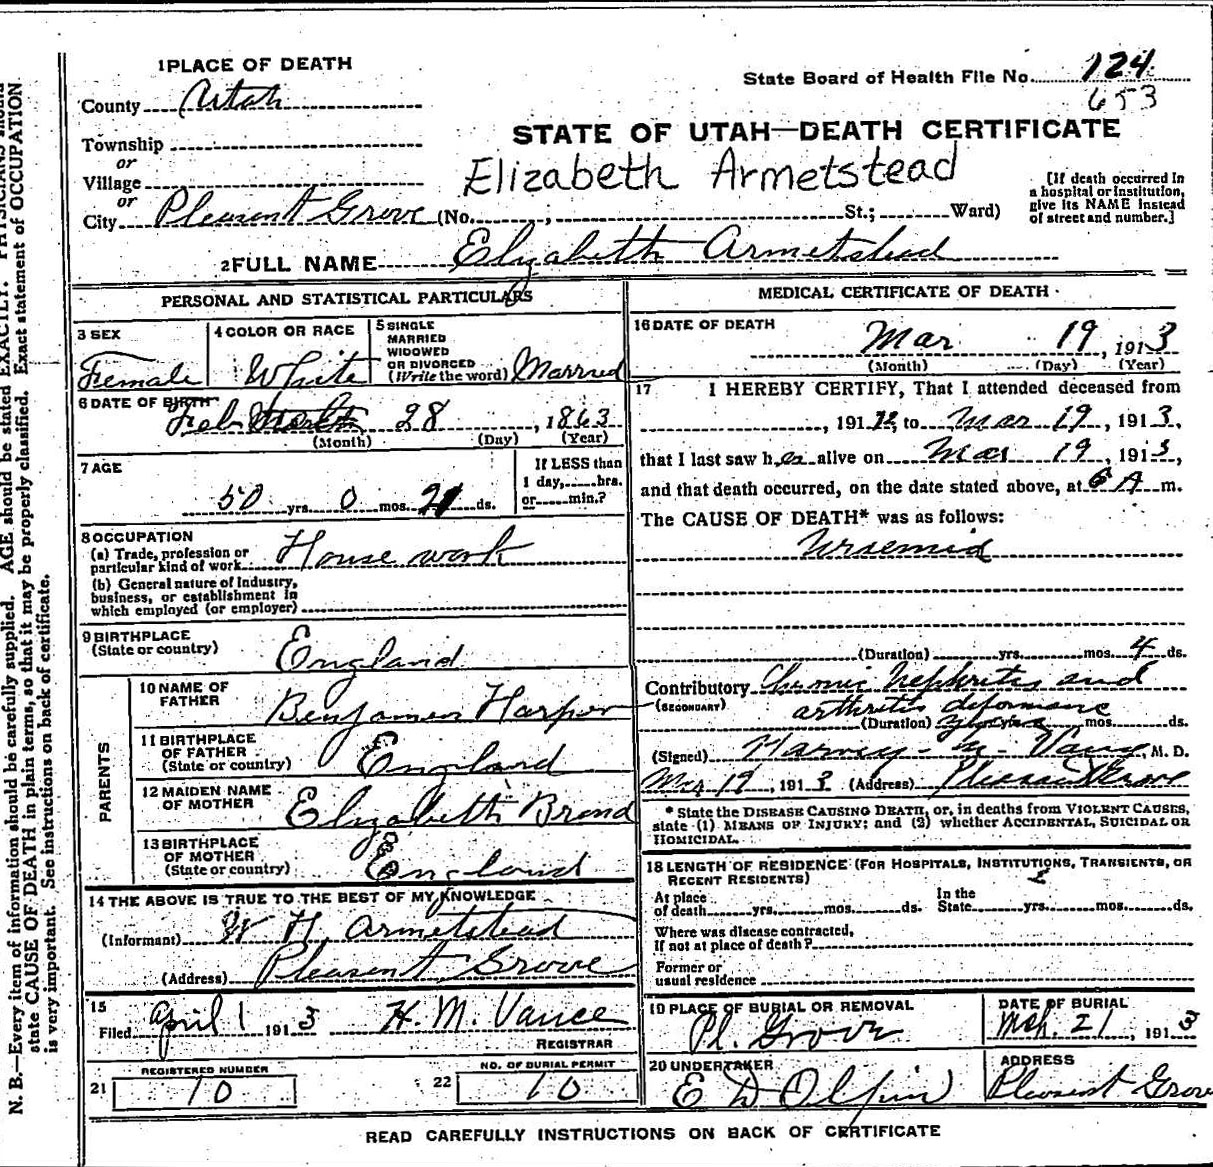 1 PLACE OF DEATH
County Utah
Township
or
Village
or
City Pleasant Grove (No. , St.; Ward)
State Board of Health File No. 124
653
STATE OF UTAH—DEATH CERTIFICATE
Elizabeth Armetstead
[If death occurred in a hospital or institution, give its NAME instead of street and number.]
2 FULL NAME Elizabeth Armetstead
PERSONAL AND STATISTICAL PARTICULARS
3 SEX
Female
4 COLOR OR RACE
White
5 SINGLE
MARRIED
WIDOWED
OR DIVORCED
(Write the word) Married
6 DATE OF BIRTH
Feb 28, 1863
(Month) (Day) (Year)
7 AGE
50 yrs. 0 mos. 21 ds.
If LESS than
1 day, hrs.
or min.?
8 OCCUPATION
(a) Trade, profession or
particular kind of work House work
(b) General nature of Industry,
business, or establishment in
which employed (or employer)
9 BIRTHPLACE
(State or country) England
PARENTS
10 NAME OF
FATHER Benjamen Harper
11 BIRTHPLACE
OF FATHER
(State or country) England
12 MAIDEN NAME
OF MOTHER Elizabeth Brond
13 BIRTHPLACE
OF MOTHER
(State or country) England
14 THE ABOVE IS TRUE TO THE BEST OF MY KNOWLEDGE
(Informant) W H. Armetstead
(Address) Pleasant Grove
15
Filed April 1 1913 H. M. Vance
REGISTRAR
REGISTERED NUMBER
21 10
NO. OF BURIAL PERMIT
22 10
MEDICAL CERTIFICATE OF DEATH
16 DATE OF DEATH
Mar 19, 1913
(Month) (Day) (Year)
17 I HEREBY CERTIFY, That I attended deceased from
, 1912, to Mar 19, 1913,
that I last saw her alive on Mar 19, 1913,
and that death occurred, on the date stated above, at 6 A m.
The CAUSE OF DEATH* was as follows:
Uraemia
(Duration) yrs. mos. 4 ds.
Contributory Chronic Nephritis and
(SECONDARY) arthritis deformans
(Duration) mos. ds.
(Signed) Harvey M. Vance, M. D.
Mar 19, 1913 (Address) Pleasant Grove
* State the DISEASE CAUSING DEATH, or, in deaths from VIOLENT CAUSES,
state (1) MEANS OF INJURY; and (2) whether ACCIDENTAL, SUICIDAL OR
HOMICIDAL.
18 LENGTH OF RESIDENCE (FOR HOSPITALS, INSTITUTIONS, TRANSIENTS, OR
RECENT RESIDENTS)
At place
of death yrs. mos. ds.
In the
State yrs. mos. ds.
Where was disease contracted,
if not at place of death?
Former or
usual residence
19 PLACE OF BURIAL OR REMOVAL
Pl. Grove
DATE OF BURIAL
Mch. 21, 1913
20 UNDERTAKER
E D Olpin
ADDRESS
Pleasant Grove
READ CAREFULLY INSTRUCTIONS ON BACK OF CERTIFICATE
N. B.—Every item of information should be carefully supplied. AGE should be stated EXACTLY. PHYSICIANS should
state CAUSE OF DEATH in plain terms, so that it may be properly classified. Exact statement of OCCUPATION
is very important. See instructions on back of certificate.